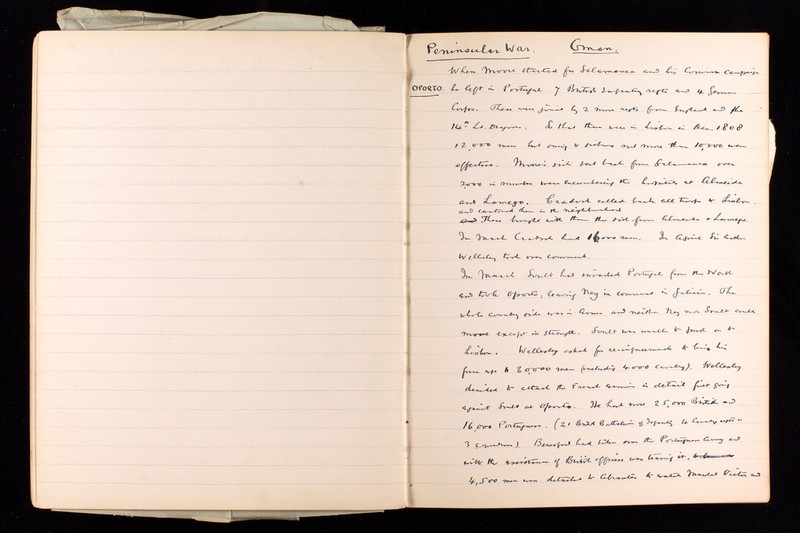 Peninsular War. Oman.
When Moore started for Salamanca and his Corunna campaign
OPORTO. he left in Portugal 7 British Infantry regts and 4 German
Corps. These were joined by 2 more regts from England and the
14th Lt. Dragoons. So that there were in Lisbon in Dec. 1808
12,000 men but owing to sickness not more than 10,000 were
effective. Moore's sick sent back from Salamanca over
2,000 in number were encumbering the hospitals at Almeida
and Lamego. Cradock called back all troops to Lisbon.
and cantoned them in the neighbourhood
These brought with them the sick from Almeida & Lamego.
In March Cradock had 16,000 men. In April Sir Arthur
Wellesley took over command.
In March Soult had invaded Portugal from the North
and took Oporto, leaving Ney in command in Galicia. The
whole country side was in arms and neither Ney nor Soult could
move except in strength. Soult was unable to push on to
Lisbon. Wellesley asked for reinforcements to bring his
force up to 20,000 men (including 4000 Cavalry). Wellesley
decided to attack the French armies in detail first going
against Soult at Oporto. He had now 25,000 British and
16,000 Portuguese. (21 British Battalions of Infantry Cavalry regts
3 ). Beresford had taken over the Portuguese Army and
with the assistance of British officers was training it.
4,500 men were detached to Abrantes to watch Marshal Victor and